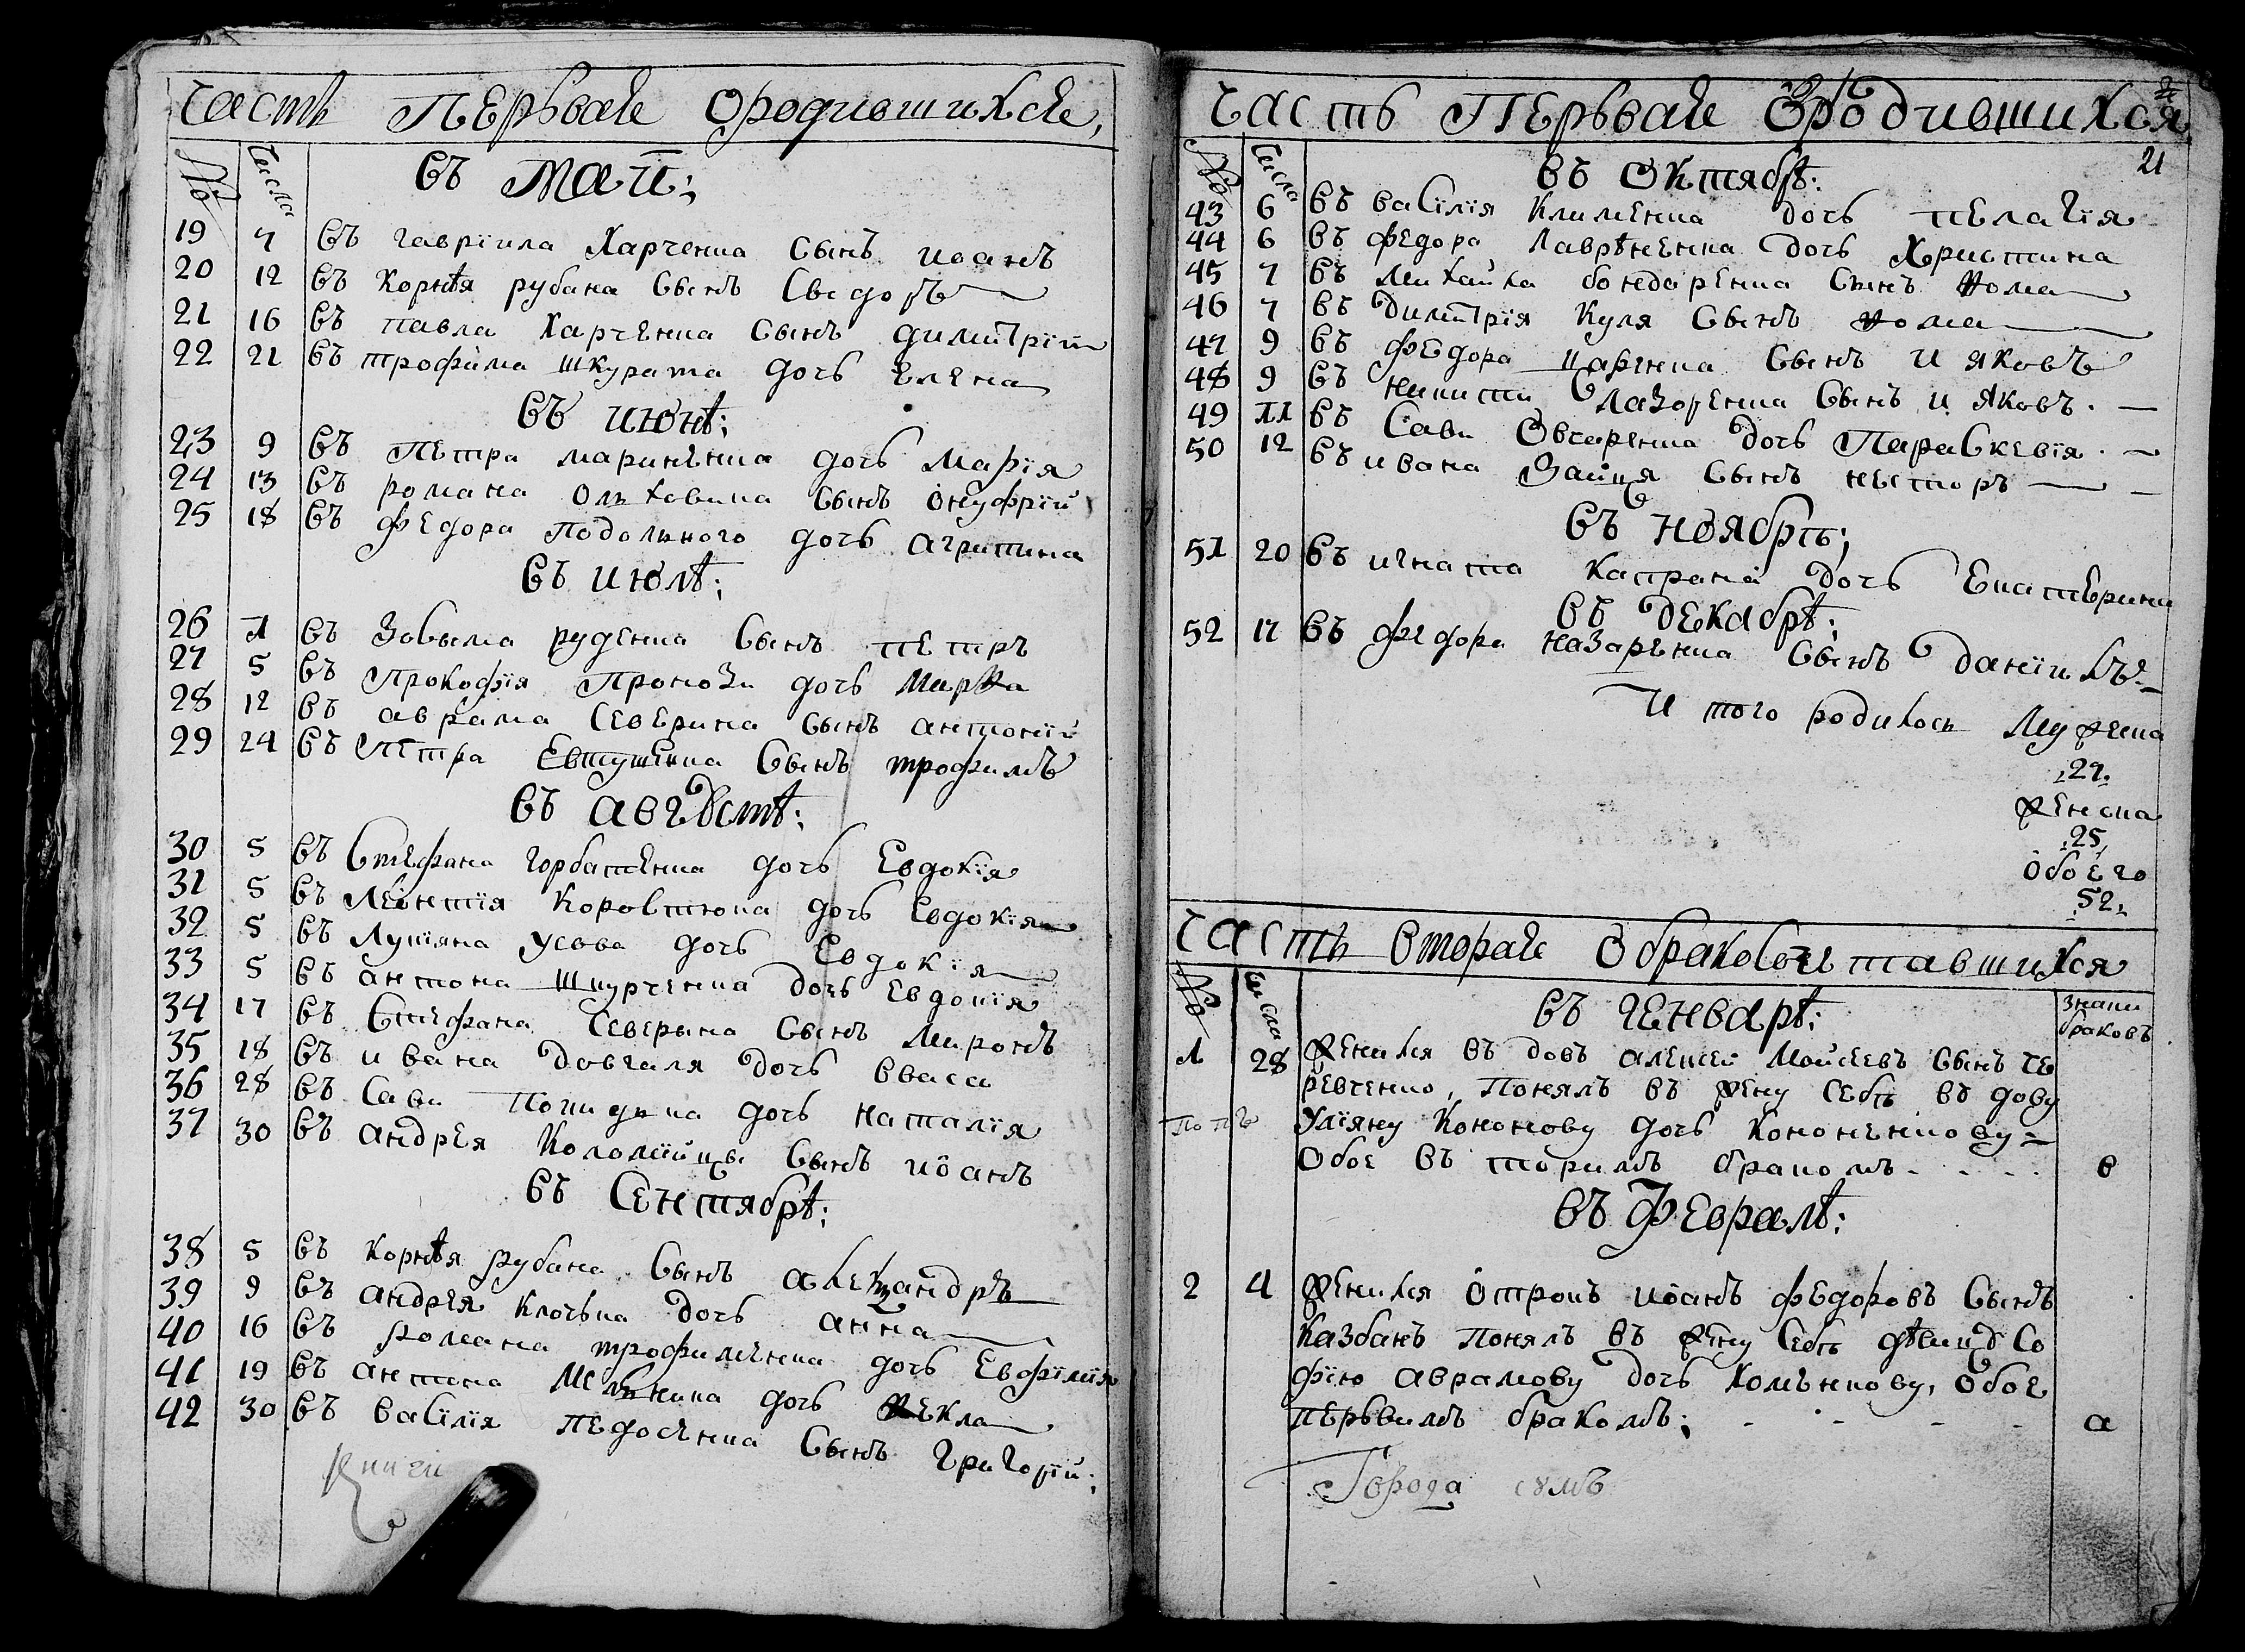 Часть Первая Ородившихся,
№ Числа
въ Маіи:
19 7 въ гавріила Харченка сынъ иоанъ
20 12 въ Корнѣя рубана Сынъ Сидоръ
21 16 въ павла Харченка Сынъ димитрій
22 21 въ трофима шкурата дочъ Елена
въ июнѣ:
23 9 въ Петра мариненка дочъ Марія
24 13 въ романа Ольховика Сынъ Онуфрій
25 18 въ федора Подольного дочъ агрипина
въ июлѣ:
26 1 въ Зосыма руденка Сынъ петръ
27 5 въ Прокофія дочъ Марѳа
28 12 въ аврама Северина Сынъ антоній
29 24 въ Петра Евтушенка Сынъ трофимъ
въ августѣ:
30 5 въ Стефана горбатенка дочъ Евдокія
31 5 въ Леонтія Коровтюка дочъ Евдокія
32 5 въ Лукіяна Усова дочъ Евдокія
33 5 въ антона Шкурченка дочъ Евдокія
34 17 въ Стефана Северына Сынъ Миронъ
35 18 въ ивана довгаля дочъ
36 28 въ Сави дочъ наталія
37 30 въ андрея Коломійця Сынъ иоанъ
въ Сентябрѣ:
38 5 въ Корнѣя рубана Сынъ алеѯандръ
39 9 въ андрея Клочька дочъ анна
40 16 въ романа трофименка дочъ Евфімія
41 19 въ антона Мельника дочъ Ѳекла
42 30 въ васілія Федосенка Сынъ Григорій:
Книги
Часть Первая Ородившихся
№ Числа
21
въ Октябрѣ:
43 6 въ васілія Клименка дочъ пелагія
44 6 въ федора Лаврѣненка дочъ Христина
45 7 въ Михайла бондаренка Сынъ Ѳома
46 7 въ димитрія Куля Сынъ Ѳома
47 9 въ федора Сынъ Ияковъ
48 9 въ никити Лазоренка Сынъ Ияковъ.
49 11 въ Сави Овчаренка дочъ Параскевія.
50 12 въ ивана Зайця Сынъ несторъ
въ ноябрѣ;
51 20 въ игната Капрана дочъ Екатерина
въ декабрѣ:
52 17 въ федора назаренка Сынъ даніилъ
И того родилось Мужеска
27.
женска
25,
Обоего
52.
Часть вторая Обракосочетавшихся
№ Числа
въ генварѣ:
Знаки браковъ
1 28 Женился въдовъ алексей Мойсеевъ Сынъ Те
ревченко, Понялъ въ жену Себѣ въдову
Улїяну Кононову дочъ Кононенкову
Обое въторимъ бракомъ. в
въ Февралѣ:
2 4 Женился Отрокъ иоанъ федоровъ Сынъ
Казбанъ Понялъ въ жену Себѣ дѣвицу Со
фію аврамову дочъ Хоменкову, Обое
первимъ бракомъ: а
Города сумъ